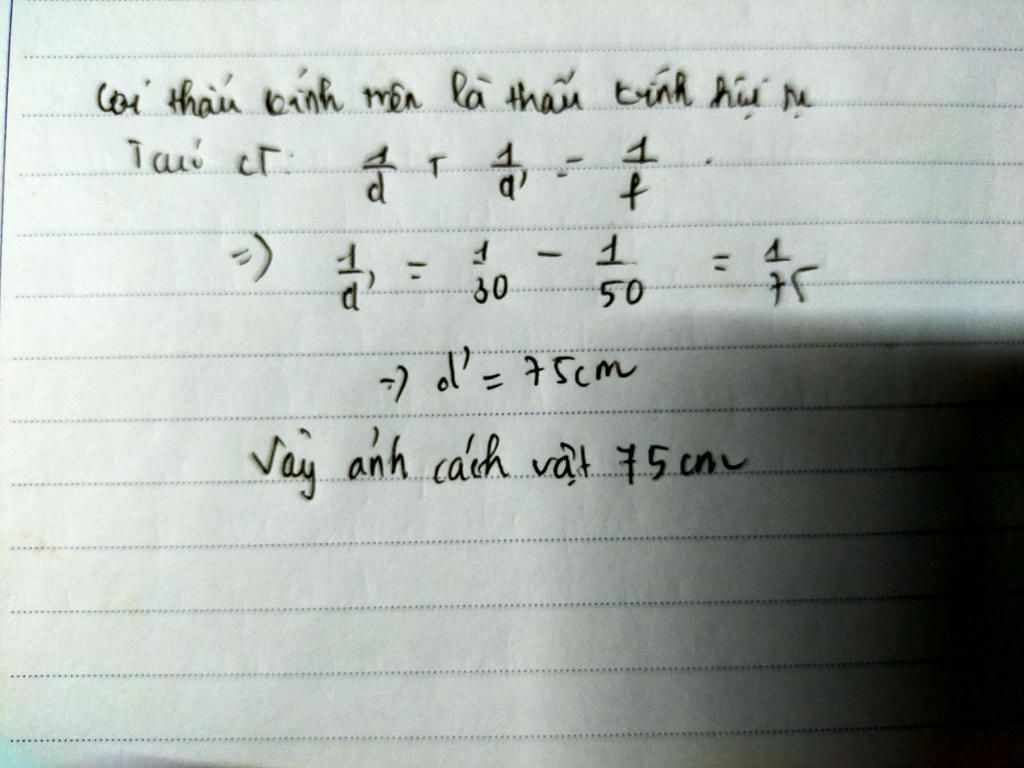 Coi thấu kính trên là thấu kính hội tụ
Ta có CT: 1/d + 1/d' = 1/f
=) 1/d' = 1/30 - 1/50 = 1/75
=) d' = 75cm
Vậy ảnh cách vật 75cm